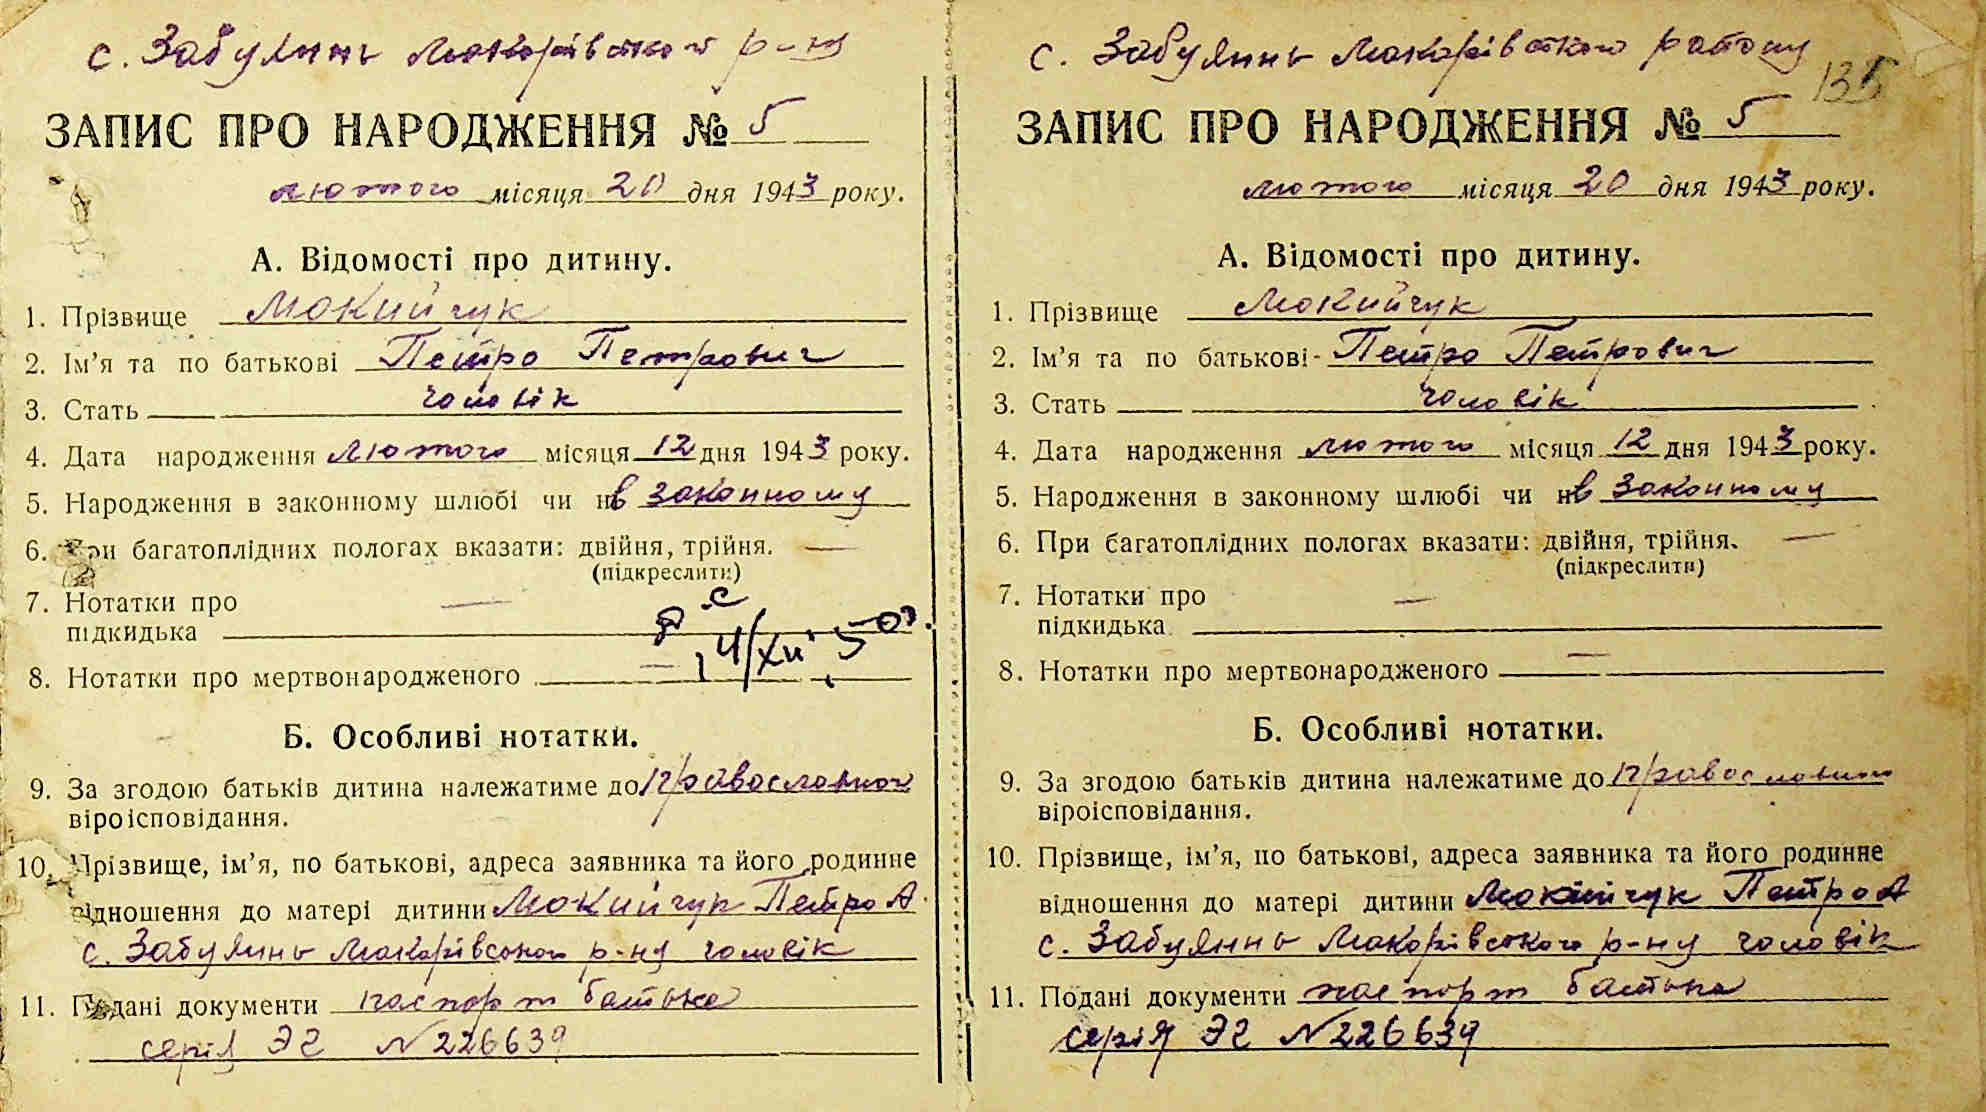 с. Забуяннь Макарівського р-ну
ЗАПИС ПРО НАРОДЖЕННЯ № 5
лютого місяця 20 дня 1943 року.
А. Відомості про дитину.
1. Прізвище Мокийчук
2. Ім'я та по батькові Петро Петрович
3. Стать чоловік
4. Дата народження лютого місяця 12 дня 1943 року.
5. Народження в законному шлюбі чи в законному
6. При багатоплідних пологах вказати: двійня, трійня. —
(підкреслити)
7. Нотатки про —
підкидька
14/XII 50
8. Нотатки про мертвонародженого —
Б. Особливі нотатки.
9. За згодою батьків дитина належатиме до православного
віроісповідання.
10. Прізвище, ім'я, по батькові, адреса заявника та його родинне
відношення до матері дитини Мокийчук Петро А.
с. Забуяннь Макарівського р-ну чоловік
11. Подані документи паспорт батька
серія ЭГ № 226639
с. Забуяннь Макарівського району
135
ЗАПИС ПРО НАРОДЖЕННЯ № 5
лютого місяця 20 дня 1943 року.
А. Відомості про дитину.
1. Прізвище Мокийчук
2. Ім'я та по батькові - Петро Петрович
3. Стать чоловік
4. Дата народження лютого місяця 12 дня 1943 року.
5. Народження в законному шлюбі чи в законному
6. При багатоплідних пологах вказати: двійня, трійня. —
(підкреслити)
7. Нотатки про —
підкидька
8. Нотатки про мертвонародженого —
Б. Особливі нотатки.
9. За згодою батьків дитина належатиме до православного
віроісповідання.
10. Прізвище, ім'я, по батькові, адреса заявника та його родинне
відношення до матері дитини Мокійчук Петро А
с. Забуяннь Макарівського р-ну чоловік
11. Подані документи паспорт батька
серія ЭГ № 226639